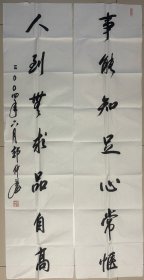 事能知足心常惬
人到无求品自高
二〇〇四年六月